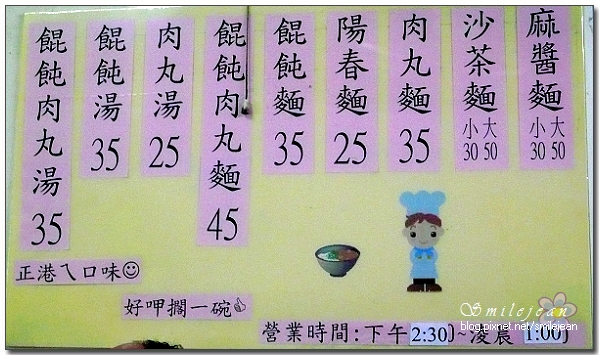 麻醬麵 小30 大50
沙茶麵 小30 大50
肉丸麵 35
陽春麵 25
餛飩麵 35
餛飩肉丸麵 45
肉丸湯 25
餛飩湯 35
餛飩肉丸湯 35
正港ㄟ口味☺
好呷擱一碗👍
營業時間:下午2:30~凌晨1:00
Smilejean
blog.pixnet.net/smilejean